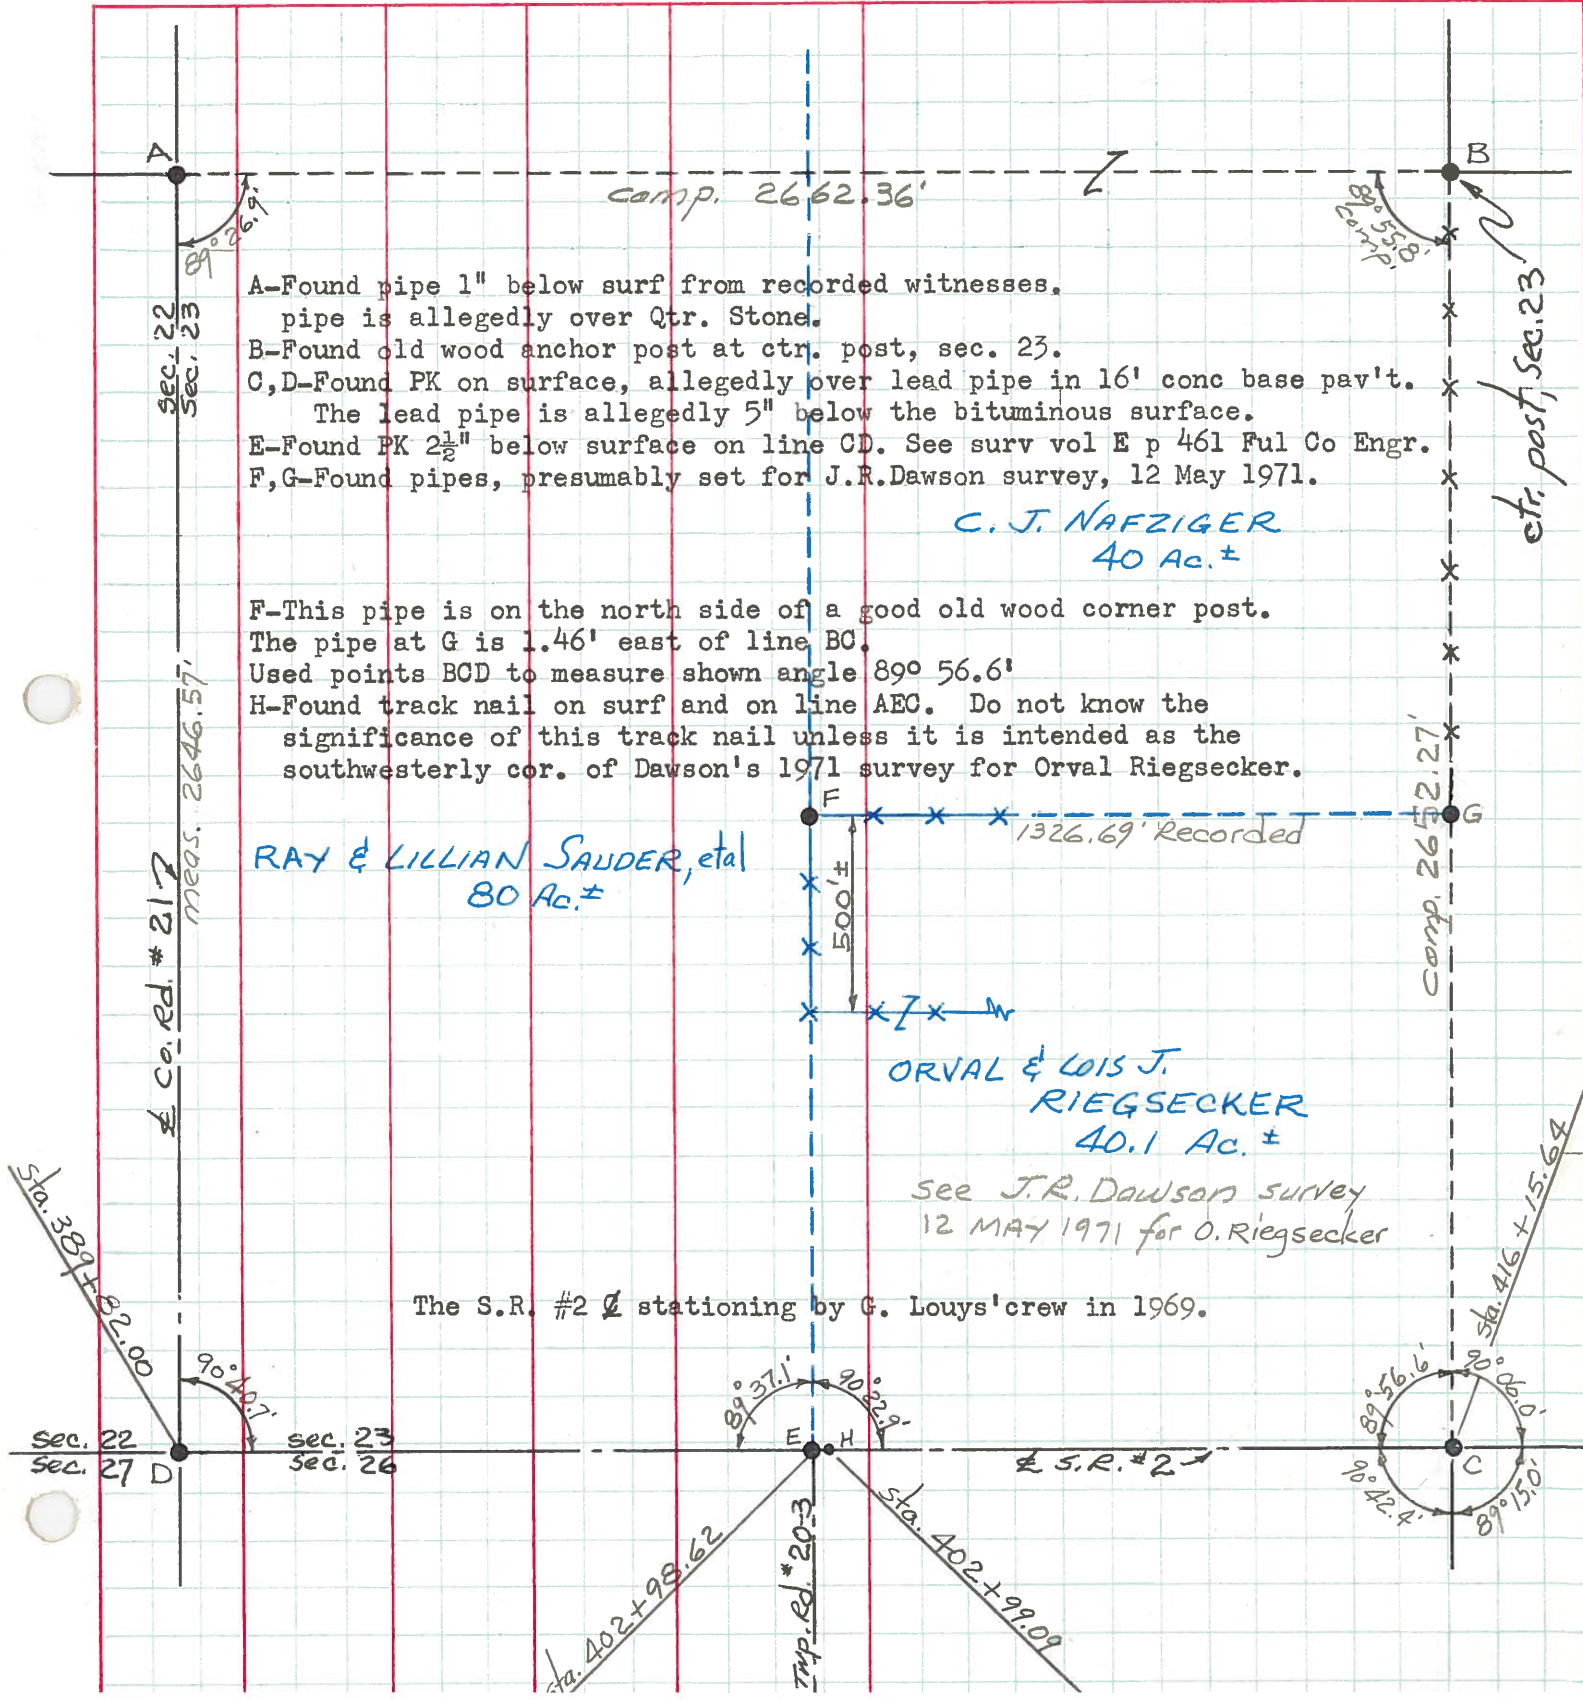 A
B
comp. 2662.36'
89° 26.9'
89° 55.8'
comp.
A-Found pipe 1" below surf from recorded witnesses.
pipe is allegedly over Qtr. Stone.
B-Found old wood anchor post at ctr. post, sec. 23.
C,D-Found PK on surface, allegedly over lead pipe in 16' conc base pav't.
The lead pipe is allegedly 5" below the bituminous surface.
E-Found PK 2½" below surface on line CD. See surv vol E p 461 Ful Co Engr.
F,G-Found pipes, presumably set for J.R.Dawson survey, 12 May 1971.
sec. 22
sec. 23
ctr. post, Sec. 23
C. J. NAFZIGER
40 Ac.±
F-This pipe is on the north side of a good old wood corner post.
The pipe at G is 1.46' east of line BC.
Used points BCD to measure shown angle 89° 56.6'
H-Found track nail on surf and on line AEC.  Do not know the
significance of this track nail unless it is intended as the
southwesterly cor. of Dawson's 1971 survey for Orval Riegsecker.
meas. 2646.57'
comp. 2652.27'
F
G
1326.69' Recorded
RAY & LILLIAN SAUDER, etal
80 Ac.±
500'±
℄ Co. Rd. #21
ORVAL & LOIS J.
RIEGSECKER
40.1 Ac. ±
see J.R. Dawson survey
12 MAY 1971 for O. Riegsecker
The S.R. #2 ℄ stationing by G. Louys'crew in 1969.
sta. 389+82.00
sta. 416+15.64
90° 40.7'
89° 37.1'
90° 22.9'
89° 56.6'
90° 06.0'
sec. 22
sec. 27
D
sec. 23
sec. 26
E
H
℄ S.R. #2
C
90° 42.4'
89° 15.0'
sta. 402+98.62
Twp. Rd. #20-3
sta. 402+99.09